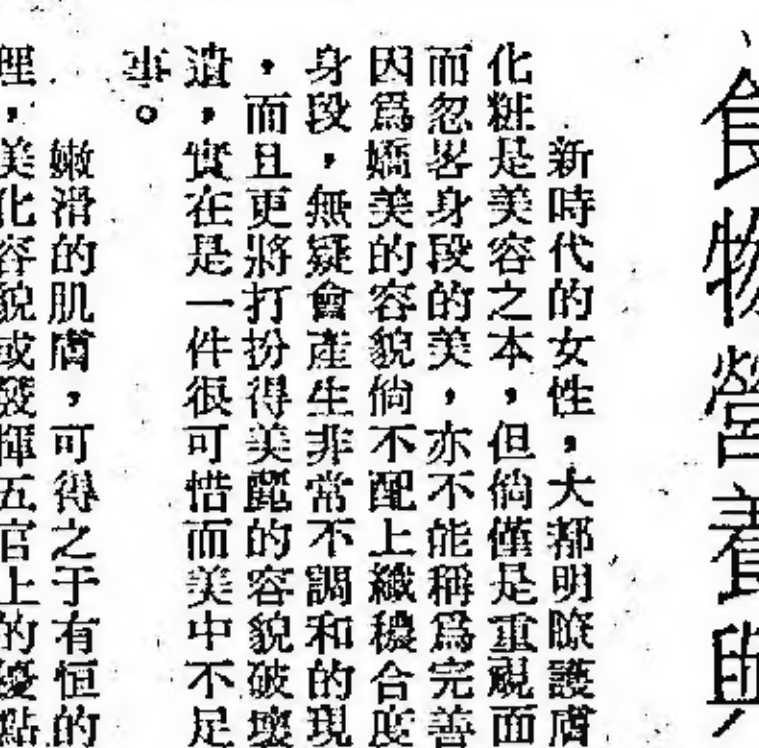 食物營養與
新時代的女性，大都明瞭護膚
化粧是美容之本，但倘僅是重視面
而忽畧身段的美，亦不能稱爲完善
因爲嬌美的容貌倘不配上纖穠合度
身段，無疑會產生非常不調和的現
，而且更將打扮得美麗的容貌破壞
遺，實在是一件很可惜而美中不足
事。
嫩滑的肌膚，可得之于有恒的
理，美化容貌或發揮五官上的優點